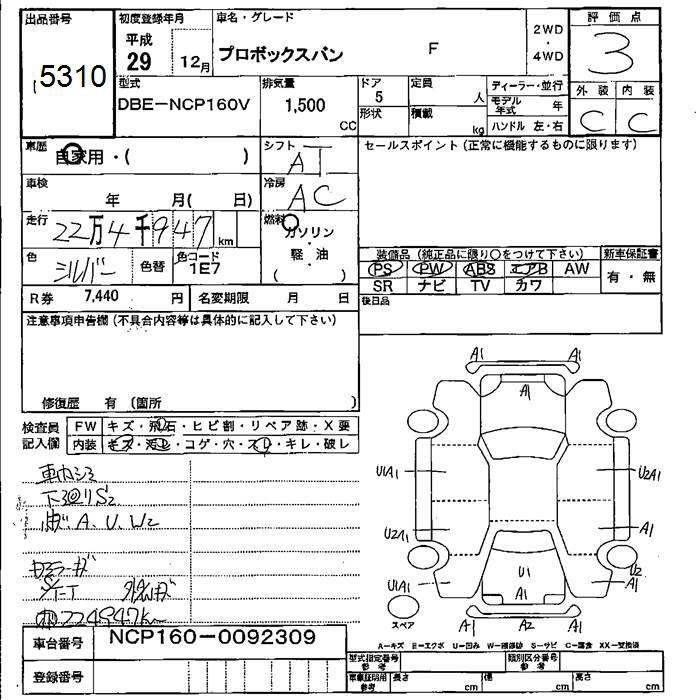 出品番号
5310
初度登録年月
平成
29 12月
車名・グレード
プロボックスバン F
2WD
・
4WD
評価点
3
型式
DBE-NCP160V
排気量
1,500
CC
ドア
5
形状
定員
人
積載
kg
ディーラー・並行
モデル年式 年
ハンドル 左・右
外装 内装
C C
車歴
自家用・( )
シフト
AT
セールスポイント(正常に機能するものに限ります)
車検
年 月( 日)
冷房
AC
走行
22万4千947 km
燃料
ガソリン
・
軽・油
( )
色
シルバー
色替
色コード
1E7
装備品(純正品に限り○をつけて下さい)
新車保証書
PS PW ABS エアB AW
有・無
SR ナビ TV カワ
R券 7,440 円
名変期限 月 日
後日品
注意事項申告欄(不具合内容等は具体的に記入して下さい)
修復歴 有(箇所 )
検査員
記入欄
FW キズ・飛石・ヒビ割・リペア跡・X要
内装 キズ・汚レ・コゲ・穴・スレ・キレ・破レ
車内シミ
下廻りS2
A.U.W2
224947km
A1 A1
A1
U1A1 U2A1
U2A1 A1
U1
U1A1 A1 U2
A1
スペア
A1 A2 A1
A-キズ E-エクボ U-凹み W-補修跡 S-サビ C-腐食 XX-交換済
車台番号
NCP160-0092309
登録番号
型式指定番号
参考
類別区分番号
参考
車庫証明用
参考
長さ cm
幅 cm
高さ cm